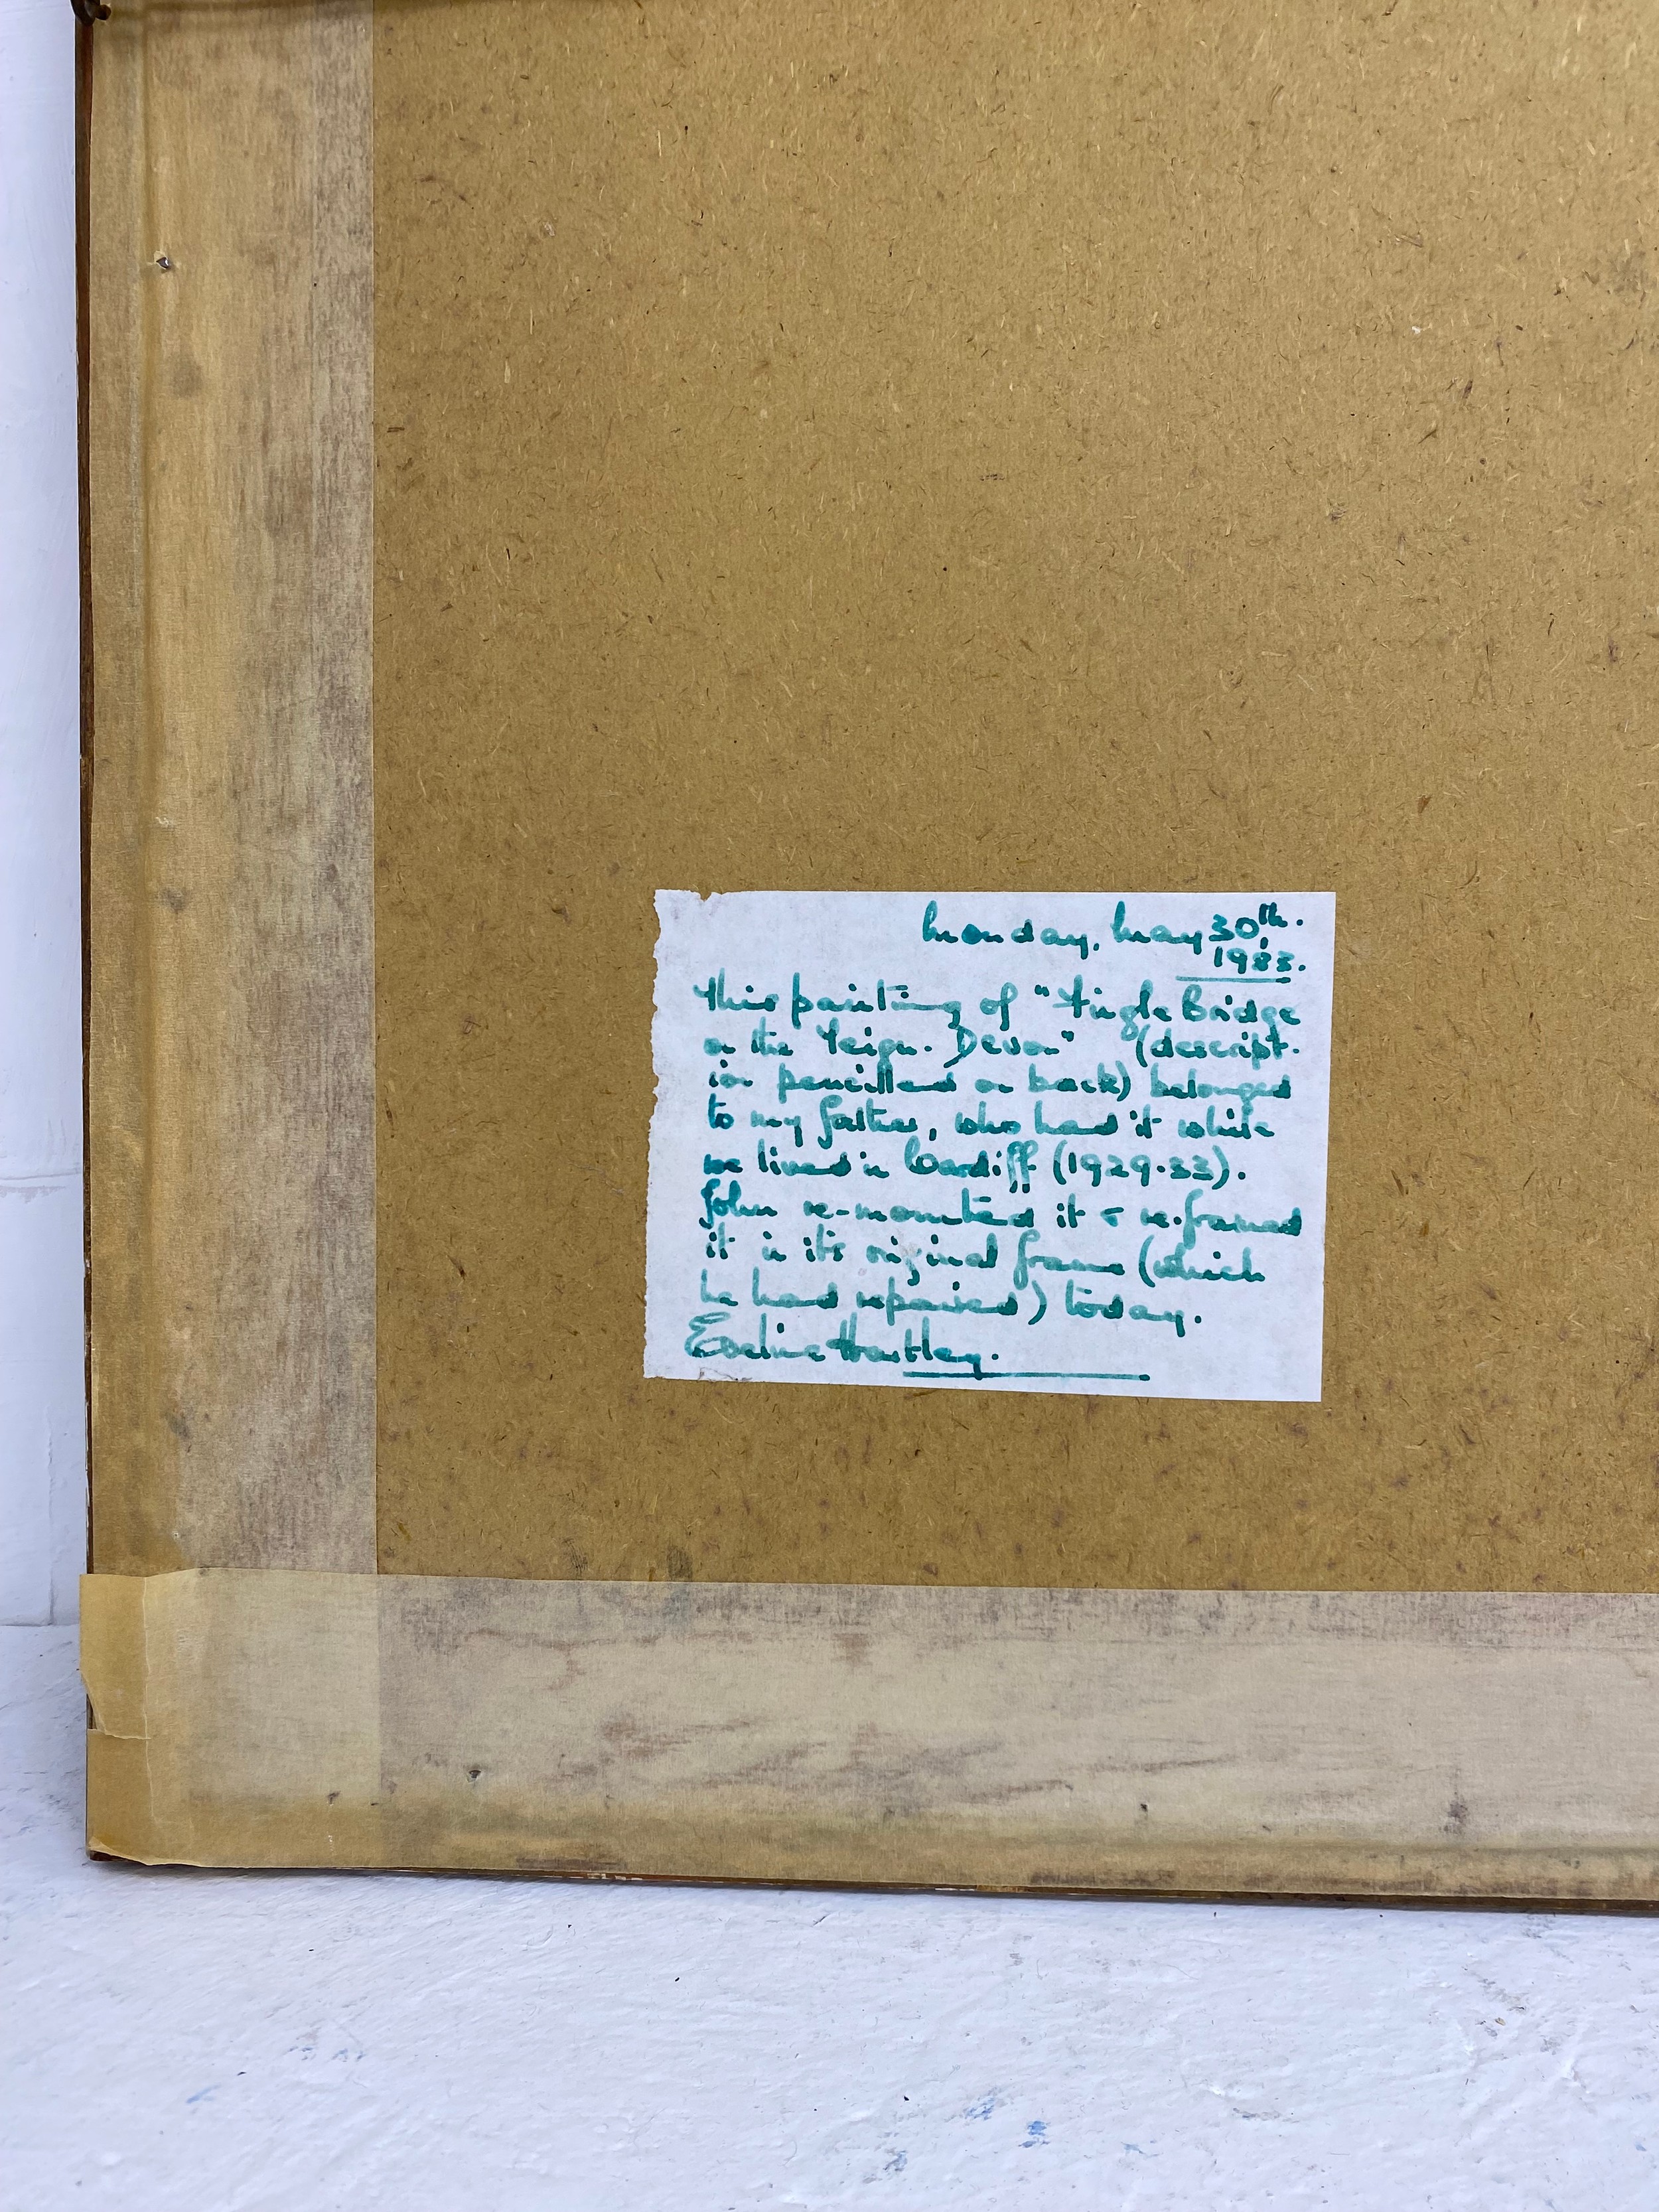 Monday, May 30th.
1983.
This painting of "Fingle Bridge
on the Teign. Devon" (descript-
ion pencilled on back) belonged
to my father, who had it while
we lived in Cardiff (1929-33).
John re-mounted it & re-framed
it in its original frame (which
he had repaired) today.
Eveline Hartley.